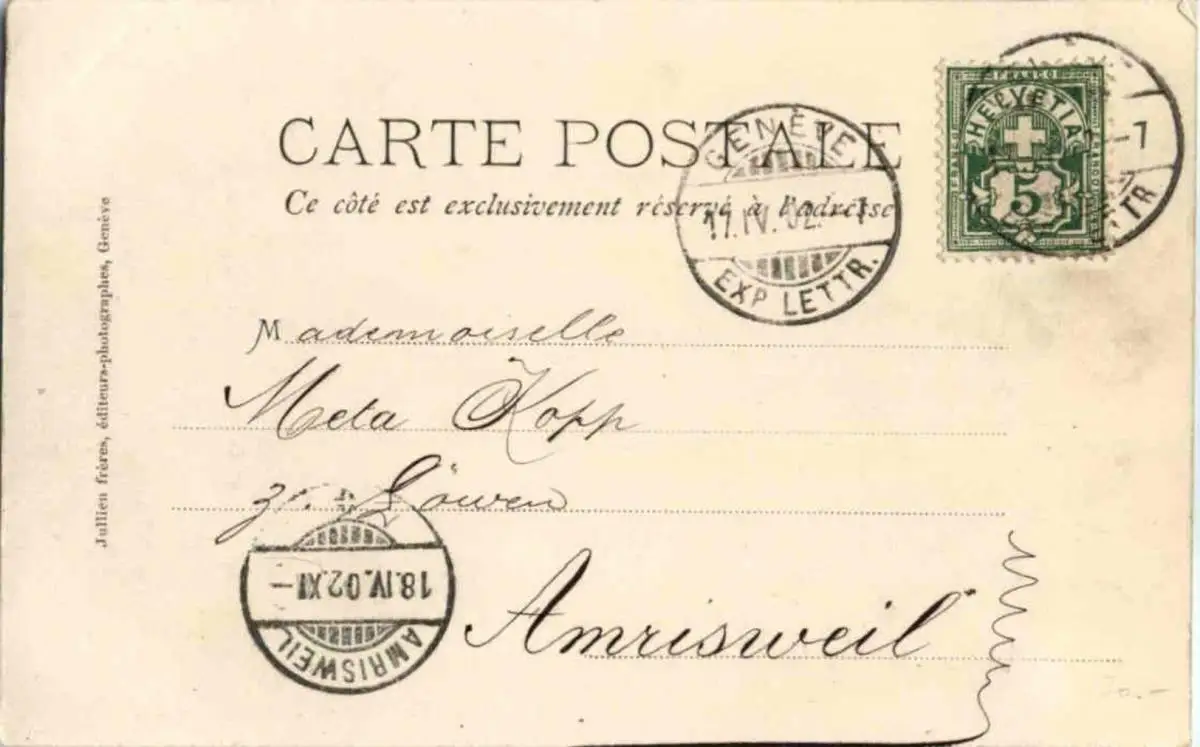 CARTE POSTALE
Ce côté est exclusivement réservé à l'adresse
FRANCO
HELVETIA
5
GENÈVE
17.IV.02.-7
EXP. LETTR.
-7
LETTR
Mademoiselle
Meta Kopp
z. Löwen
Amrisweil
18.IV.02.XI-
AMRISWEIL
Jullien frères, éditeurs-photographes, Genève